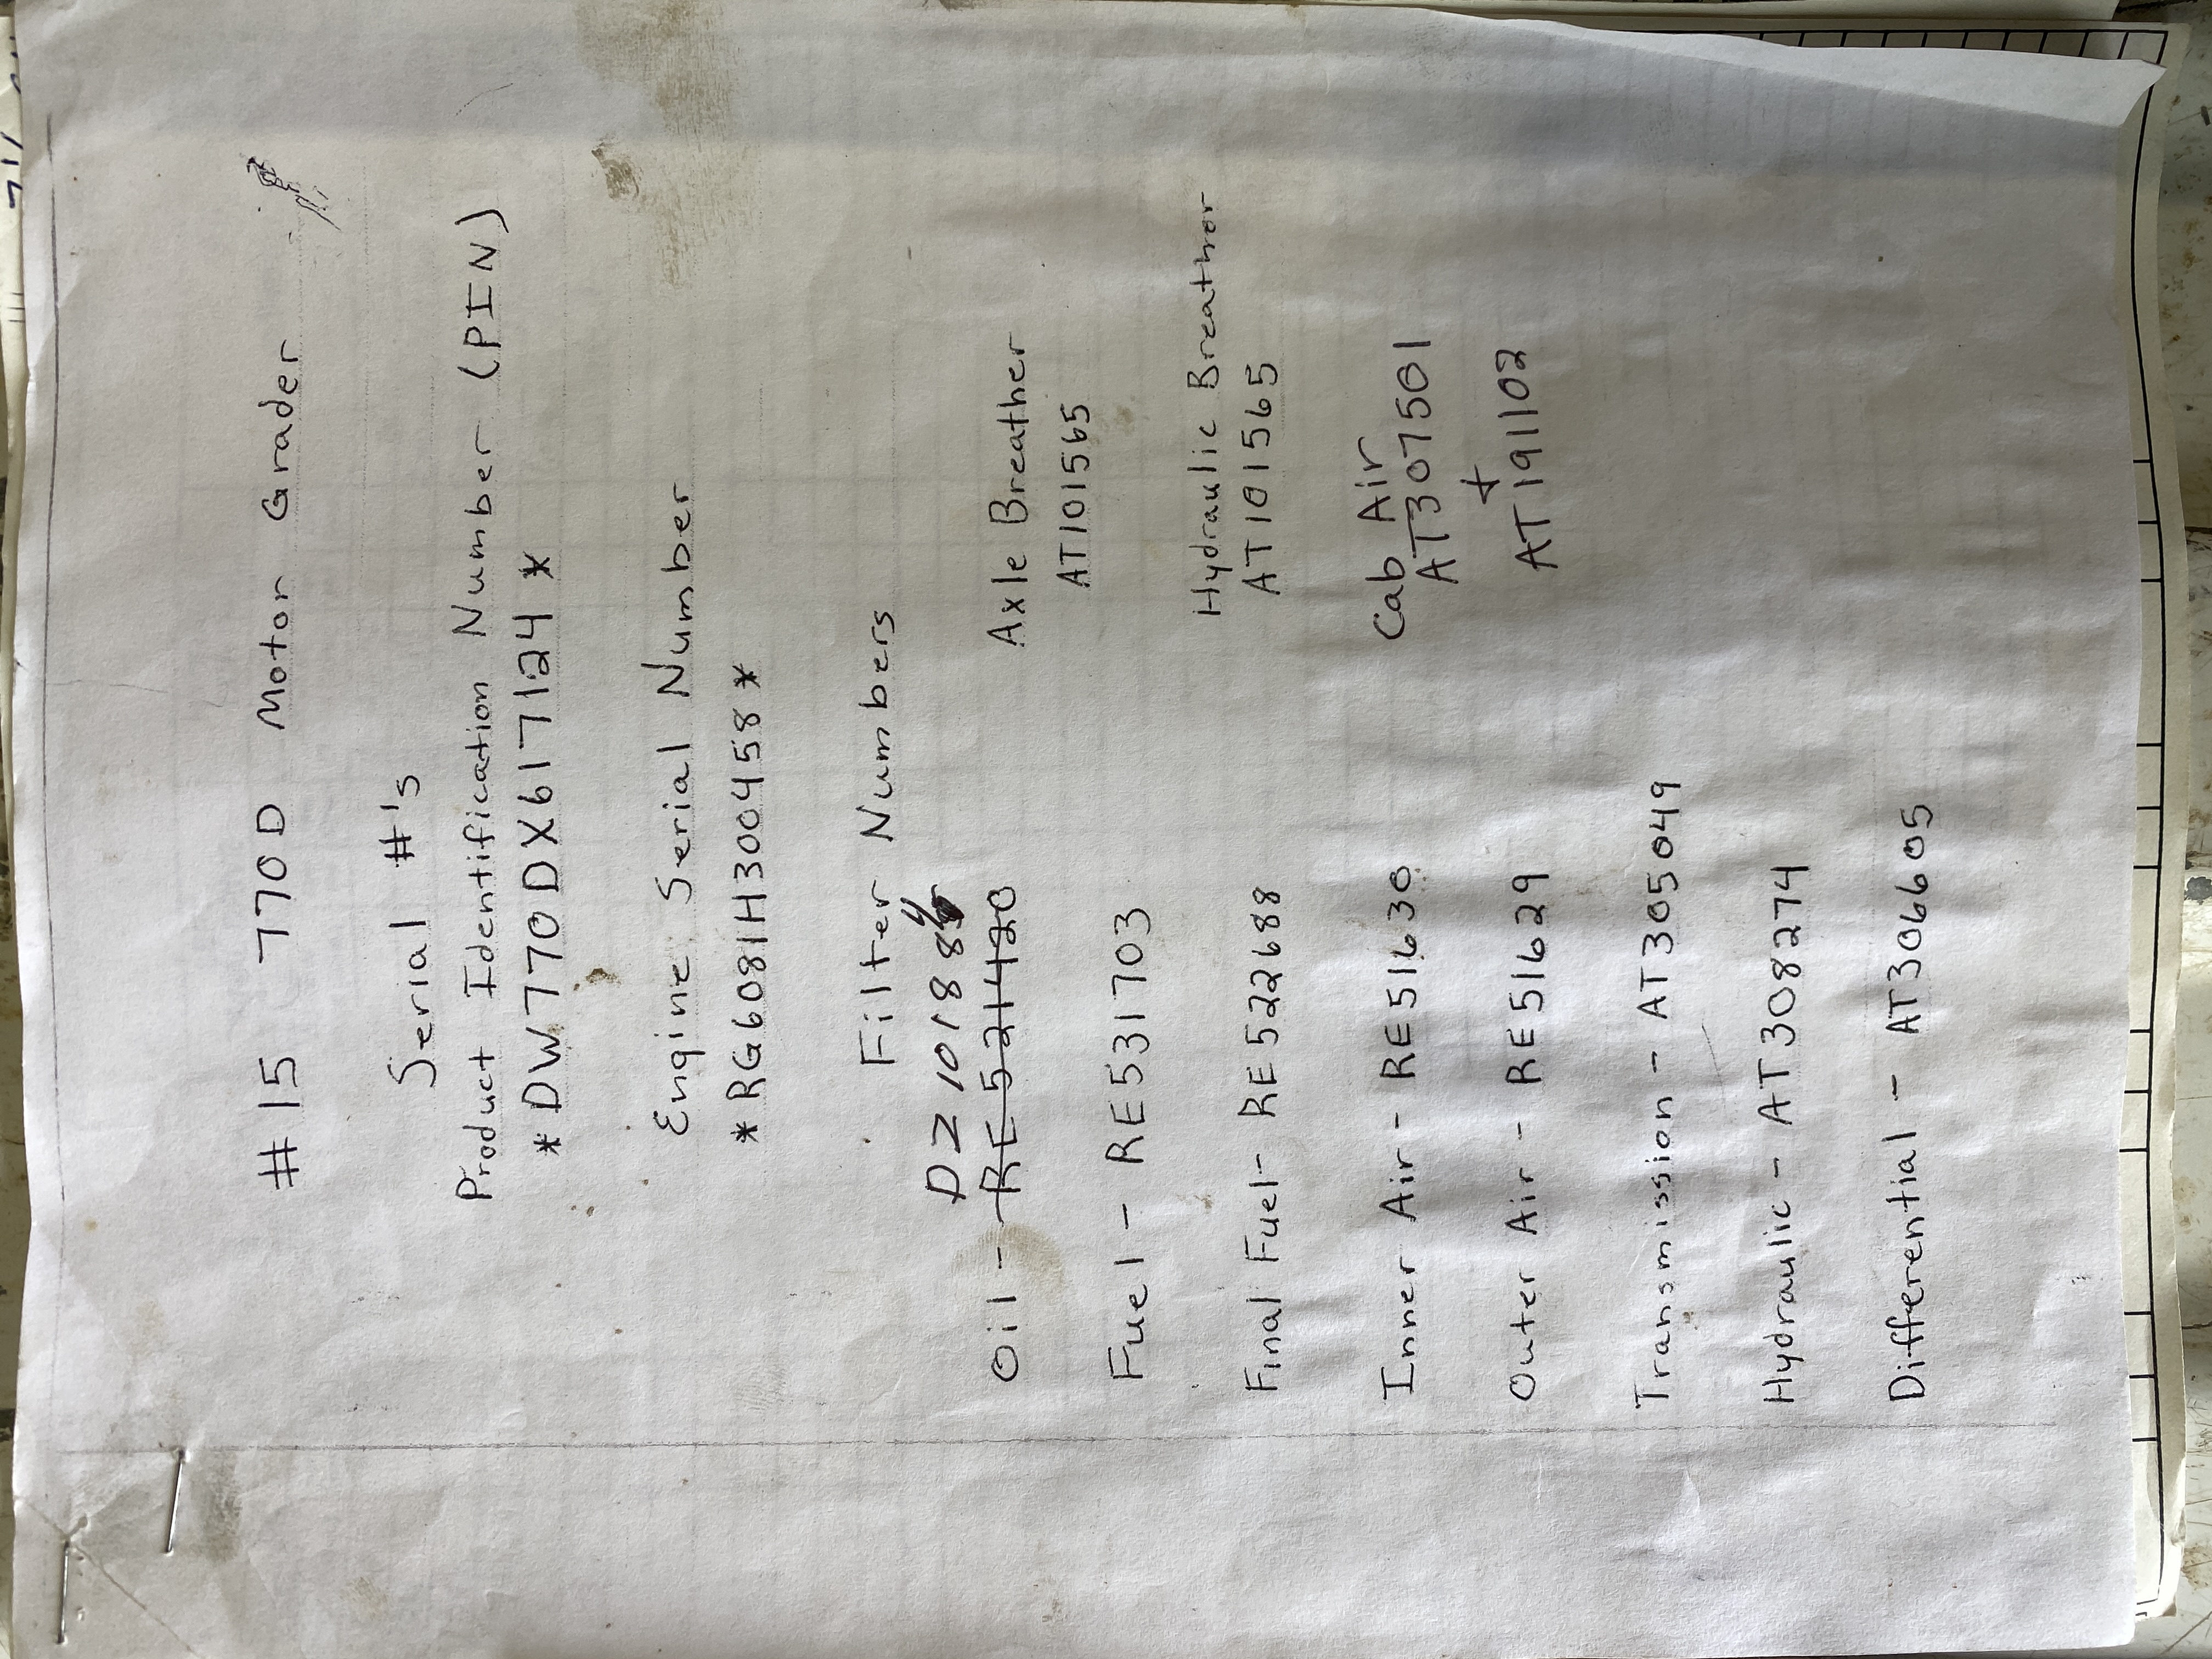 #15 770D Motor Grader
Serial #'s
Product Identification Number (PIN)
*DW770DX617124*
Engine Serial Number
*RG6081H300458*
Filter Numbers
Oil - RE521420
Axle Breather
AT101565
Fuel - RE531703
Final Fuel - RE522688
Hydraulic Breather
AT101565
Inner Air - RE51630
Cab Air
AT307501
+
AT191102
Outer Air - RE51629
Transmission - AT305049
Hydraulic - AT308274
Differential - AT306605